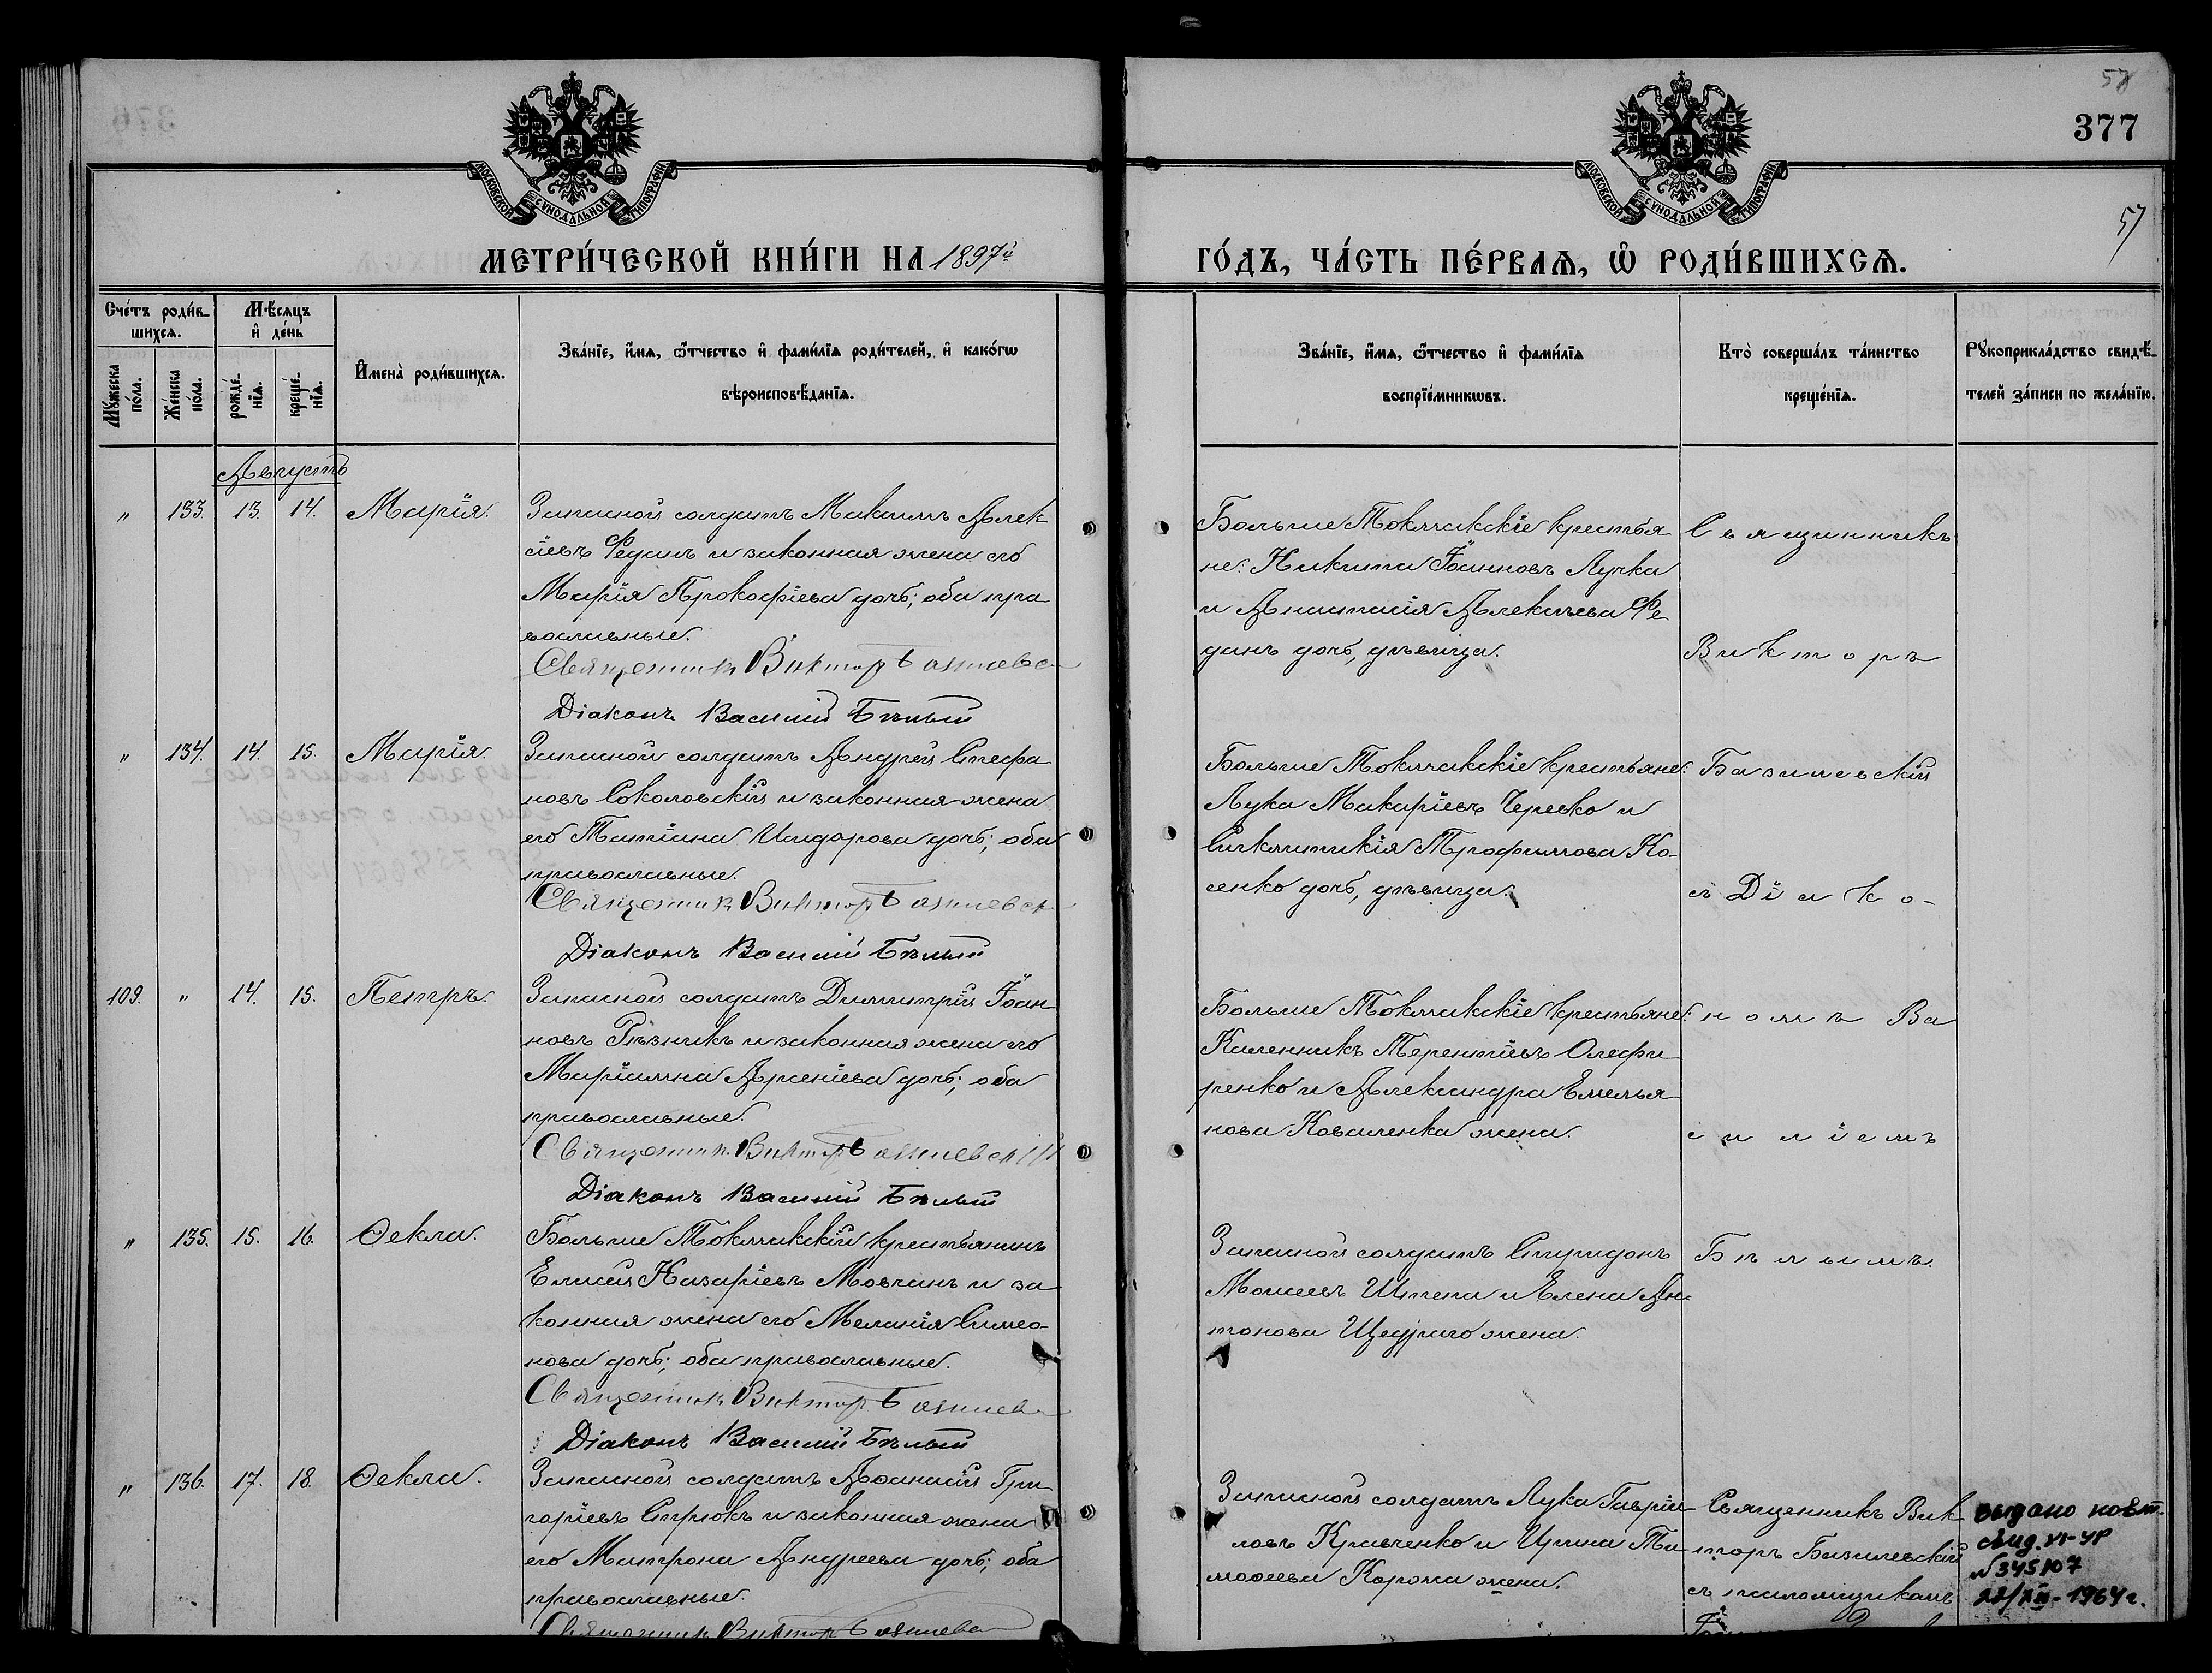 57
377
57
МОСКОВСКОЙ СѴНОДАЛЬНОЙ ТИПОГРАФІИ
МОСКОВСКОЙ СѴНОДАЛЬНОЙ ТИПОГРАФІИ
МЕТРИ́ЧЕСКОЙ КНИ́ГИ НА 1897й
ГО́ДЪ, ЧА́СТЬ ПЕ́РВАѦ, Ѡ҆ РОДИ́ВШИХСѦ.
Сче́тъ роди́в-
шихсѧ.
Мꙋ́жеска по́ла.
Же́нска по́ла.
Мѣ́сѧцъ
и҆ де́нь
рожде́-
нїѧ.
креще́-
нїѧ.
И҆мена̀ роди́вшихсѧ.
Зва́нїе, и҆́мѧ, ѻ҆́тчество и҆ фами́лїѧ роди́телей, и҆ како́гѡ
вѣроисповѣ́данїѧ.
Зва́нїе, и҆́мѧ, ѻ҆́тчество и҆ фами́лїѧ
воспрїе́мникѡвъ.
Кто̀ соверша́лъ та́инство
креще́нїѧ.
Рꙋкоприкла́дство свидѣ́-
телей за́писи по жела́нїю.
Августъ
" 133. 13. 14. Марія.
Запасной солдатъ Максимъ Алек
сіевъ Феданъ и законная жена его
Марія Прокофіева дочь; оба пра
вославные.
Священник Виктор Базилевс
Діаконъ Василій Бѣлый
Больше Токмакскіе крестья
не: Никита Іоанновъ Лучка
и Анастасія Алексѣева Фе
данъ дочь, дѣвица.
Священникъ
Викторъ
" 134. 14. 15. Марія.
Запасной солдатъ Андрей Стефа
новъ Соколовскій и законная жена
его Татіана Исидорова дочь; оба
православные.
Священник Виктор Базилевск
Діаконъ Василій Бѣлый
Больше Токмакскіе крестьяне:
Лука Макаріевъ Череско и
Синклитикія Трофимова Ко-
сенко дочь, дѣвица.
Базилевскій
съ Діако-
109. " 14. 15. Петръ.
Запасной солдатъ Димитрій Іоан
новъ Рѣзникъ и законная жена его
Маріамна Арсеніева дочь; оба
православные.
Священник Виктор Базилевскій
Діаконъ Василій Бѣлый
Больше Токмакскіе крестьяне:
Каленникъ Терентіевъ Олефи
ренко и Александра Емелья
нова Коваленка жена.
номъ Ва
силіемъ
" 135. 15. 16. Ѳекла.
Больше Токмакскій крестьянинъ
Елисей Назаріевъ Мовчанъ и за
конная жена его Меланія Симео-
нова дочь; оба православные.
Священник Виктор Базилев
Діаконъ Василій Бѣлый
Запасной солдатъ Спиридонъ
Моисеевъ Шпета и Елена Ан-
тонова Щедраго жена.
Бѣлымъ.
" 136. 17. 18. Ѳекла.
Запасной солдатъ Аѳанасій Гри
горіевъ Стрюкъ и законная жена
его Матрона Андреева дочь; оба
православные.
Священник Виктор Базилевс
Запасной солдатъ Лука Гаврі-
ловъ Кравченко и Ирина Ти-
моѳеева Корота жена.
Священникъ Вик
торъ Базилевскій
съ псаломщикомъ
выдано повт.
свид. УР
№ 345107
22/XII-1964г.